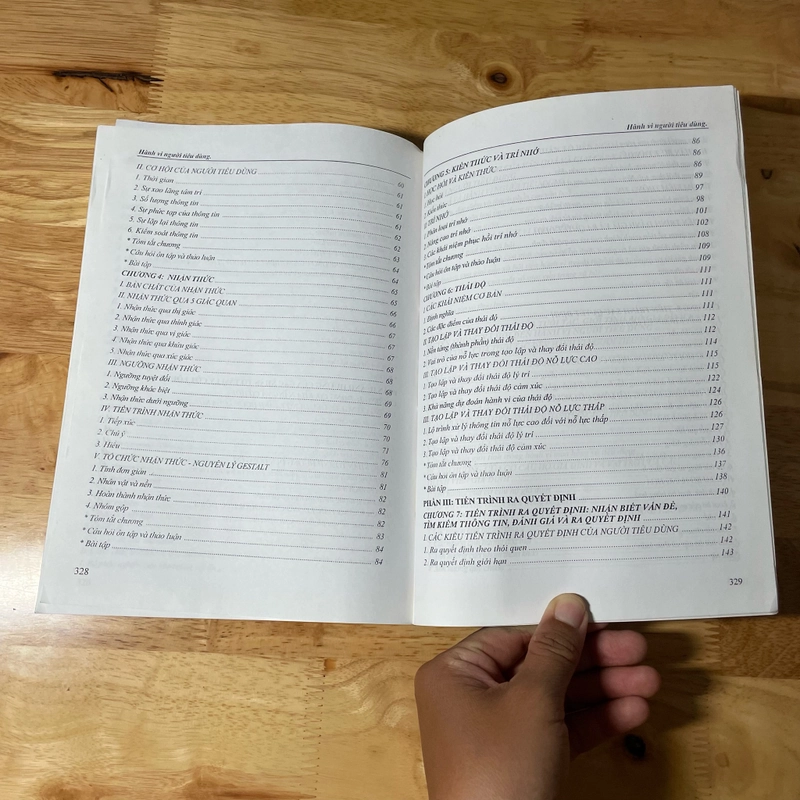 Hành vi người tiêu dùng.
II. CƠ HỘI CỦA NGƯỜI TIÊU DÙNG
1. Thời gian 60
2. Sự xao lãng tâm trí 61
3. Số lượng thông tin 61
4. Sự phức tạp của thông tin 61
5. Sự lặp lại thông tin 61
6. Kiểm soát thông tin 62
* Tóm tắt chương 63
* Câu hỏi ôn tập và thảo luận 64
* Bài tập 64
CHƯƠNG 4: NHẬN THỨC 65
I. BẢN CHẤT CỦA NHẬN THỨC 65
II. NHẬN THỨC QUA 5 GIÁC QUAN 66
1. Nhận thức qua thị giác 66
2. Nhận thức qua thính giác 66
3. Nhận thức qua vị giác 67
4 Nhận thức qua khứu giác 67
5. Nhận thức qua xúc giác 68
III. NGƯỠNG NHẬN THỨC 68
1. Ngưỡng tuyệt đối 68
2. Ngưỡng khác biệt 69
3. Nhận thức dưới ngưỡng 69
IV. TIẾN TRÌNH NHẬN THỨC 70
1. Tiếp xúc 70
2. Chú ý 71
3. Hiểu 76
V. TỔ CHỨC NHẬN THỨC - NGUYÊN LÝ GESTALT 81
1. Tính đơn giản 81
2. Nhân vật và nền 82
3. Hoàn thành nhận thức 82
4. Nhóm gộp 82
* Tóm tắt chương 83
* Câu hỏi ôn tập và thảo luận 84
* Bài tập 84
328
Hành vi người tiêu dùng.
CHƯƠNG 5: KIẾN THỨC VÀ TRÍ NHỚ 86
I. HỌC HỎI VÀ KIẾN THỨC 86
1. Học hỏi 86
2. Kiến thức 89
II. TRÍ NHỚ 97
1. Phân loại trí nhớ 98
2. Nâng cao trí nhớ 101
3. Các khái niệm phục hồi trí nhớ 102
* Tóm tắt chương 108
* Câu hỏi ôn tập và thảo luận 109
* Bài tập 109
CHƯƠNG 6: THÁI ĐỘ 111
I. CÁC KHÁI NIỆM CƠ BẢN 111
1. Định nghĩa 111
2. Các đặc điểm của thái độ 111
II. TẠO LẬP VÀ THAY ĐỔI THÁI ĐỘ 112
1. Nền tảng (thành phần) thái độ 112
2. Vai trò của nỗ lực trong tạo lập và thay đổi thái độ 114
III. TẠO LẬP VÀ THAY ĐỔI THÁI ĐỘ NỖ LỰC CAO 115
1. Tạo lập và thay đổi thái độ lý trí 115
2. Tạo lập và thay đổi thái độ cảm xúc 122
3. Khả năng dự đoán hành vi của thái độ 124
III. TẠO LẬP VÀ THAY ĐỔI THÁI ĐỘ NỖ LỰC THẤP 126
1. Lộ trình xử lý thông tin nỗ lực cao đối với nỗ lực thấp 126
2. Tạo lập và thay đổi thái độ lý trí 127
3. Tạo lập và thay đổi thái độ cảm xúc 130
* Tóm tắt chương 136
* Câu hỏi ôn tập và thảo luận 137
* Bài tập 138
PHẦN III: TIẾN TRÌNH RA QUYẾT ĐỊNH 140
CHƯƠNG 7: TIẾN TRÌNH RA QUYẾT ĐỊNH: NHẬN BIẾT VẤN ĐỀ,
TÌM KIẾM THÔNG TIN, ĐÁNH GIÁ VÀ RA QUYẾT ĐỊNH 141
I. CÁC KIỂU TIẾN TRÌNH RA QUYẾT ĐỊNH CỦA NGƯỜI TIÊU DÙNG 142
1. Ra quyết định theo thói quen 142
2. Ra quyết định giới hạn 143
329